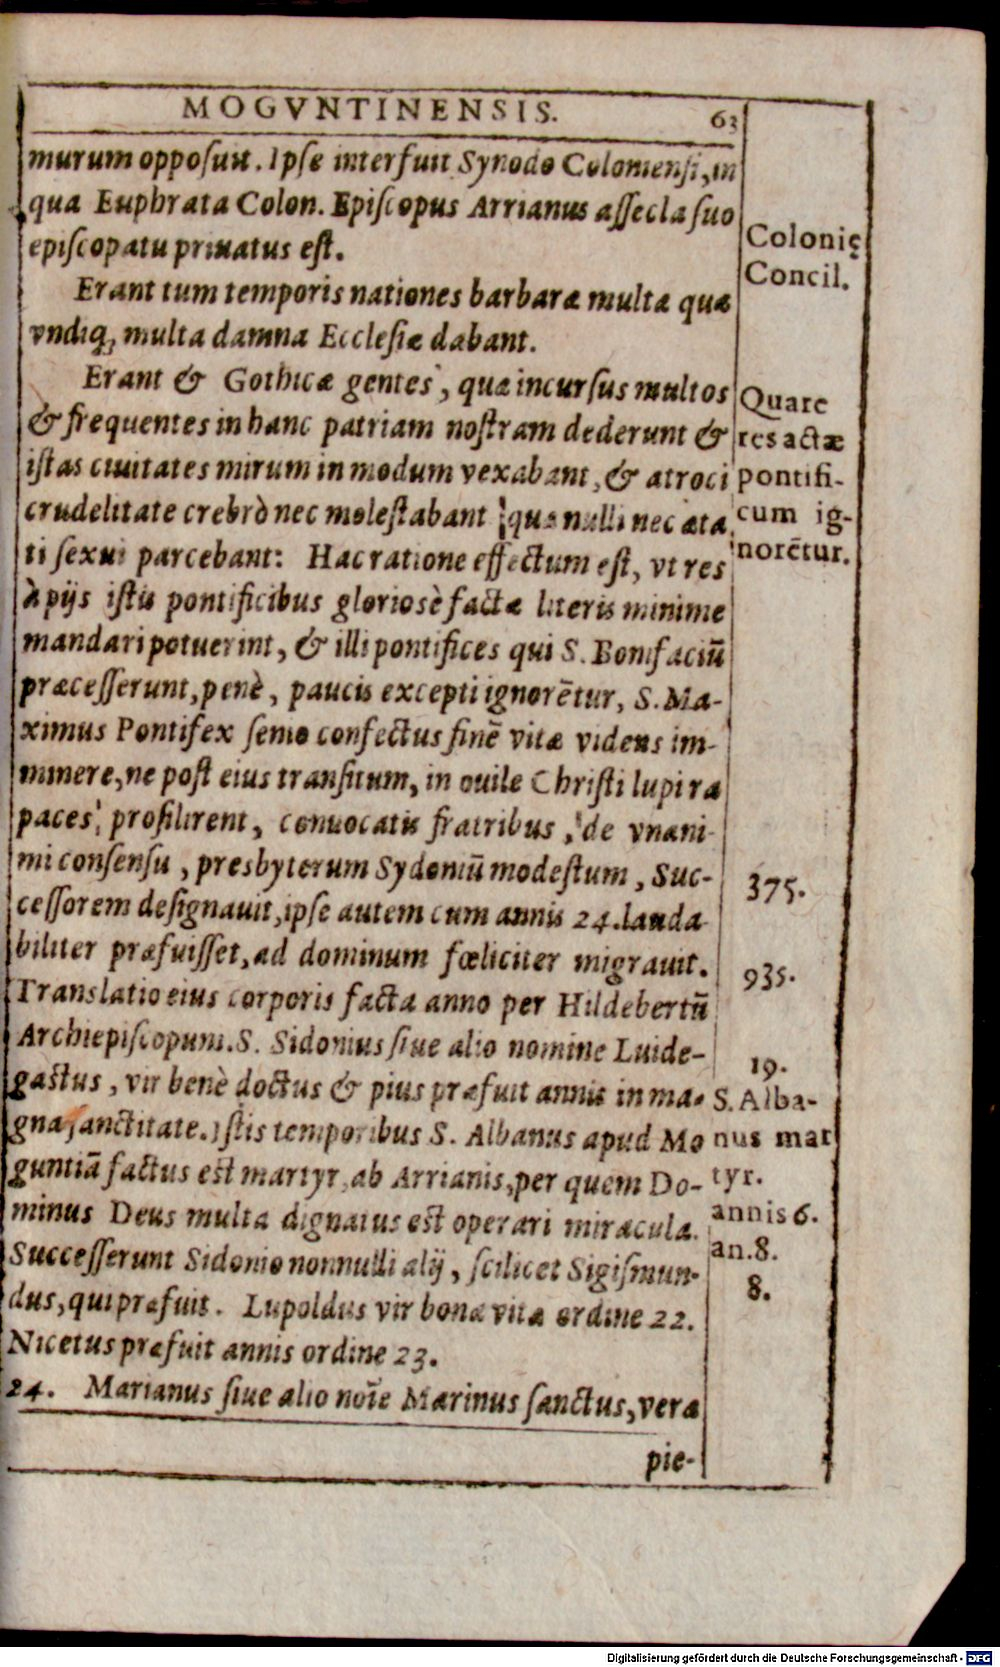 MOGVNTINENSIS. 63
murum opposuit. Ipse interfuit Synodo Coloniensi, in
qua Euphrata Colon. Episcopus Arrianus assecla suo
episcopatu priuatus est.
Colonię
Concil.
Erant tum temporis nationes barbaræ multæ quæ
vndiq; multa damna Ecclesiæ dabant.
Erant & Gothicæ gentes, quæ incursus multos
& frequentes in hanc patriam nostram dederunt &
istas ciuitates mirum in modum vexabant, & atroci
crudelitate crebrò nec molestabant quæ nulli nec æta
ti sexui parcebant: Hac ratione effectum est, vt res
à pijs istis pontificibus gloriosè factæ literis minime
mandari potuerint, & illi pontifices qui S. Bonifaciũ
præcesserunt, penè, paucis excepti ignorẽtur, S. Ma-
ximus Pontifex senio confectus finẽ vitæ videns im-
minere, ne post eius transitum, in ouile Christi lupi ra
paces, profilirent, conuocatis fratribus, de vnani-
mi consensu, presbyterum Sydoniũ modestum, Suc-
cessorem designauit, ipse autem cum annis 24. lauda-
biliter præfuisset, ad dominum fœliciter migrauit.
Translatio eius corporis facta anno per Hildebertũ
Archiepiscopum. S. Sidonius siue alio nomine Luide-
gastus, vir benè doctus & pius præfuit annis in ma-
gna sanctitate. Istis temporibus S. Albanus apud Mo
guntiã factus est martyr, ab Arrianis, per quem Do-
minus Deus multa dignatus est operari miracula.
Successerunt Sidonio nonnulli alij, scilicet Sigismun-
dus, qui præfuit. Lupoldus vir bonæ vitæ ordine 22.
Nicetus præfuit annis ordine 23.
24. Marianus siue alio noĩe Marinus sanctus, vera
pie-
Quare
res actæ
pontifi-
cum ig-
norẽtur.
375.
935.
19.
S. Alba-
nus mar
tyr.
annis 6.
an. 8.
8.
Digitalisierung gefördert durch die Deutsche Forschungsgemeinschaft - DFG